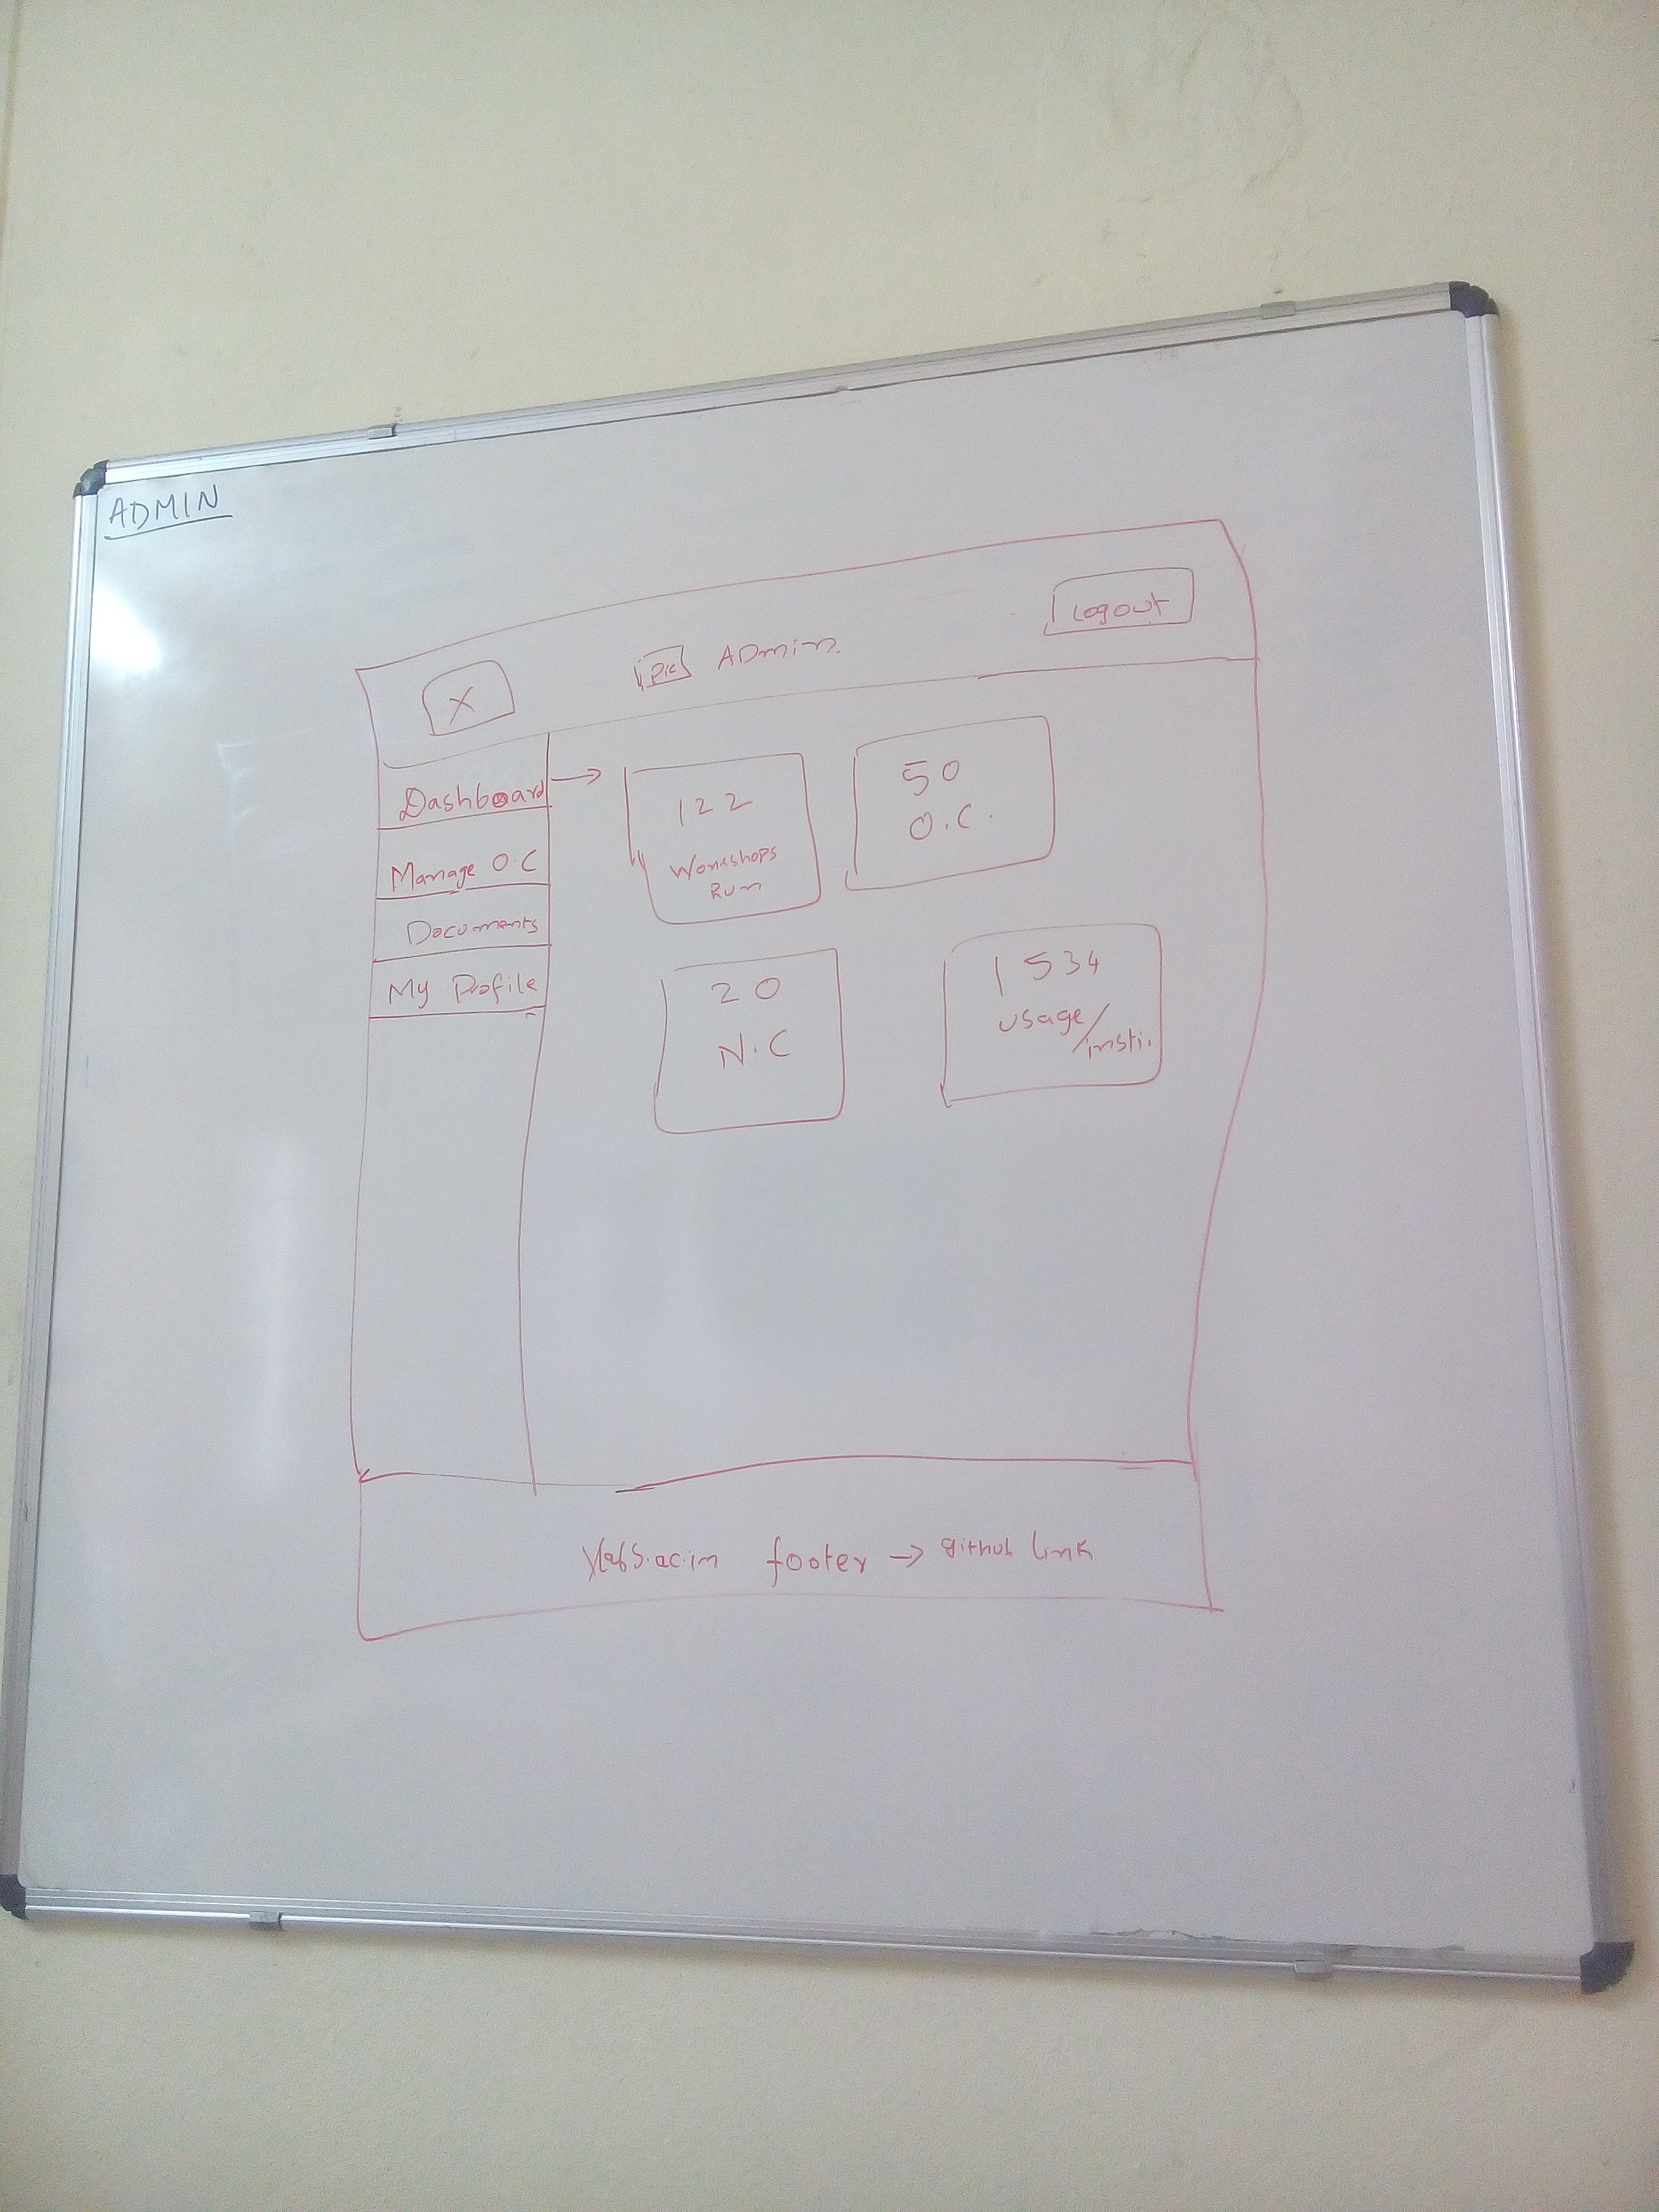 ADMIN
Logout
X
Pic ADmin.
Dashboard →
Manage O.C
Documents
My Profile
122
Workshops
Run
50
O.C.
20
N.C
1534
Usage/
insti.
Vlabs.ac.in footer → github link